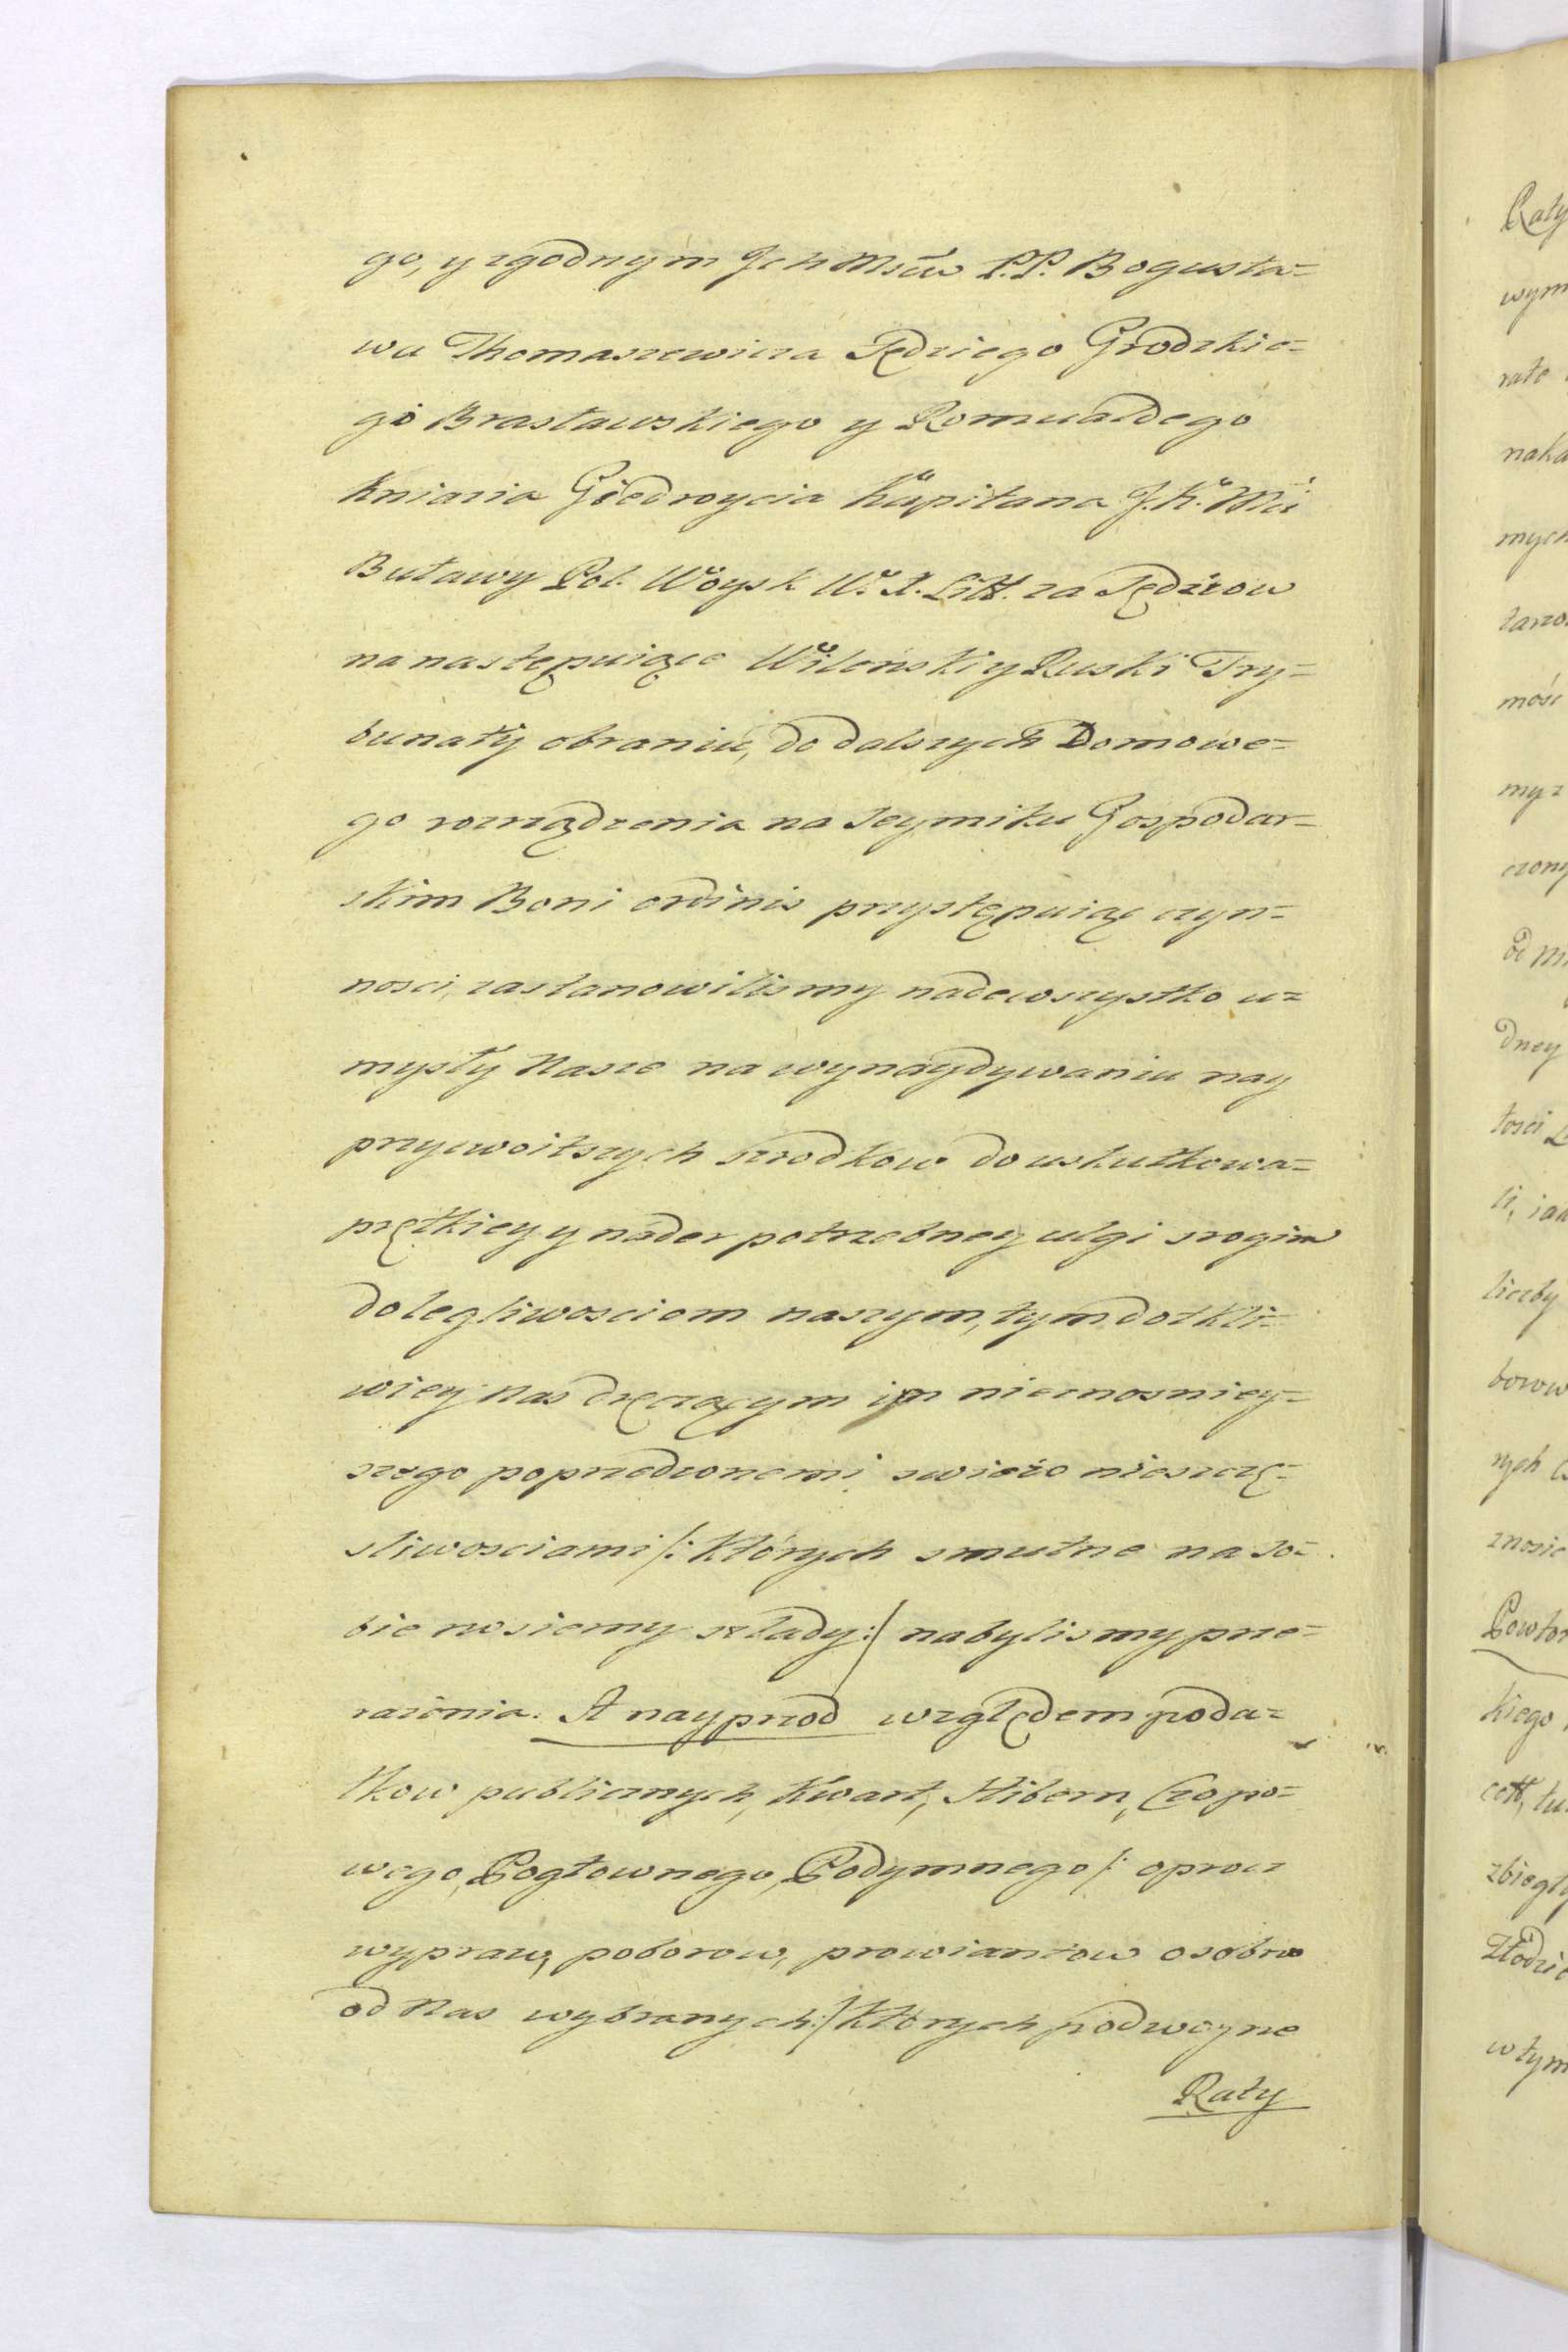 go, y zgodnym Ich Mściw P.P. Bogusła=
wa Thomaszewicza Sędziego Grodzkie=
go Brasławskiego y Romualdego
Kniazia Giedroycia Kapitana J. K. Mci
Buławy Pol. Woysk W. X. Litt. za Sędziow
na następuiące Wilenski y Ruski Try=
bunały obraniu, do dalszych Domowe=
go rozrządzenia na Seymiku Gospodar=
skim Boni ordinis przystępuiąc czyn=
nosci, zastanowilismy nadewszystko u=
mysły Nasze na wynaydywaniu nay
przyzwoitszych srzodkow do uskutkowa=
prętkiey y nader potrzebney ulgi srogim
dolegliwosciom naszym, tym dotkli=
wiey Nas dręczącym im nieznosniey=
szego poprzedzonemi swieżo nieszczę=
sliwosciami /: Których smutne na so=
bie nosiemy szlady :/ nabylismy prze=
razenia. A nayprzod względem poda=
tkow publicznych, Kwart, Hibern, Czopo=
wego, Pogłownego, Podymnego /: oprocz
wypraw, poborow, prowiantow osobno
od Nas wybranych :/ Których podwoyne
Raty
Raty
wym
rate
naka
mych
tarzo
mośc
my z
czony
od Ni
dney
tosci
li, iak
liczby
borow
nych
znosic
Powtor
kiego
cott, tu
zbiegły
Złodzie
w tym